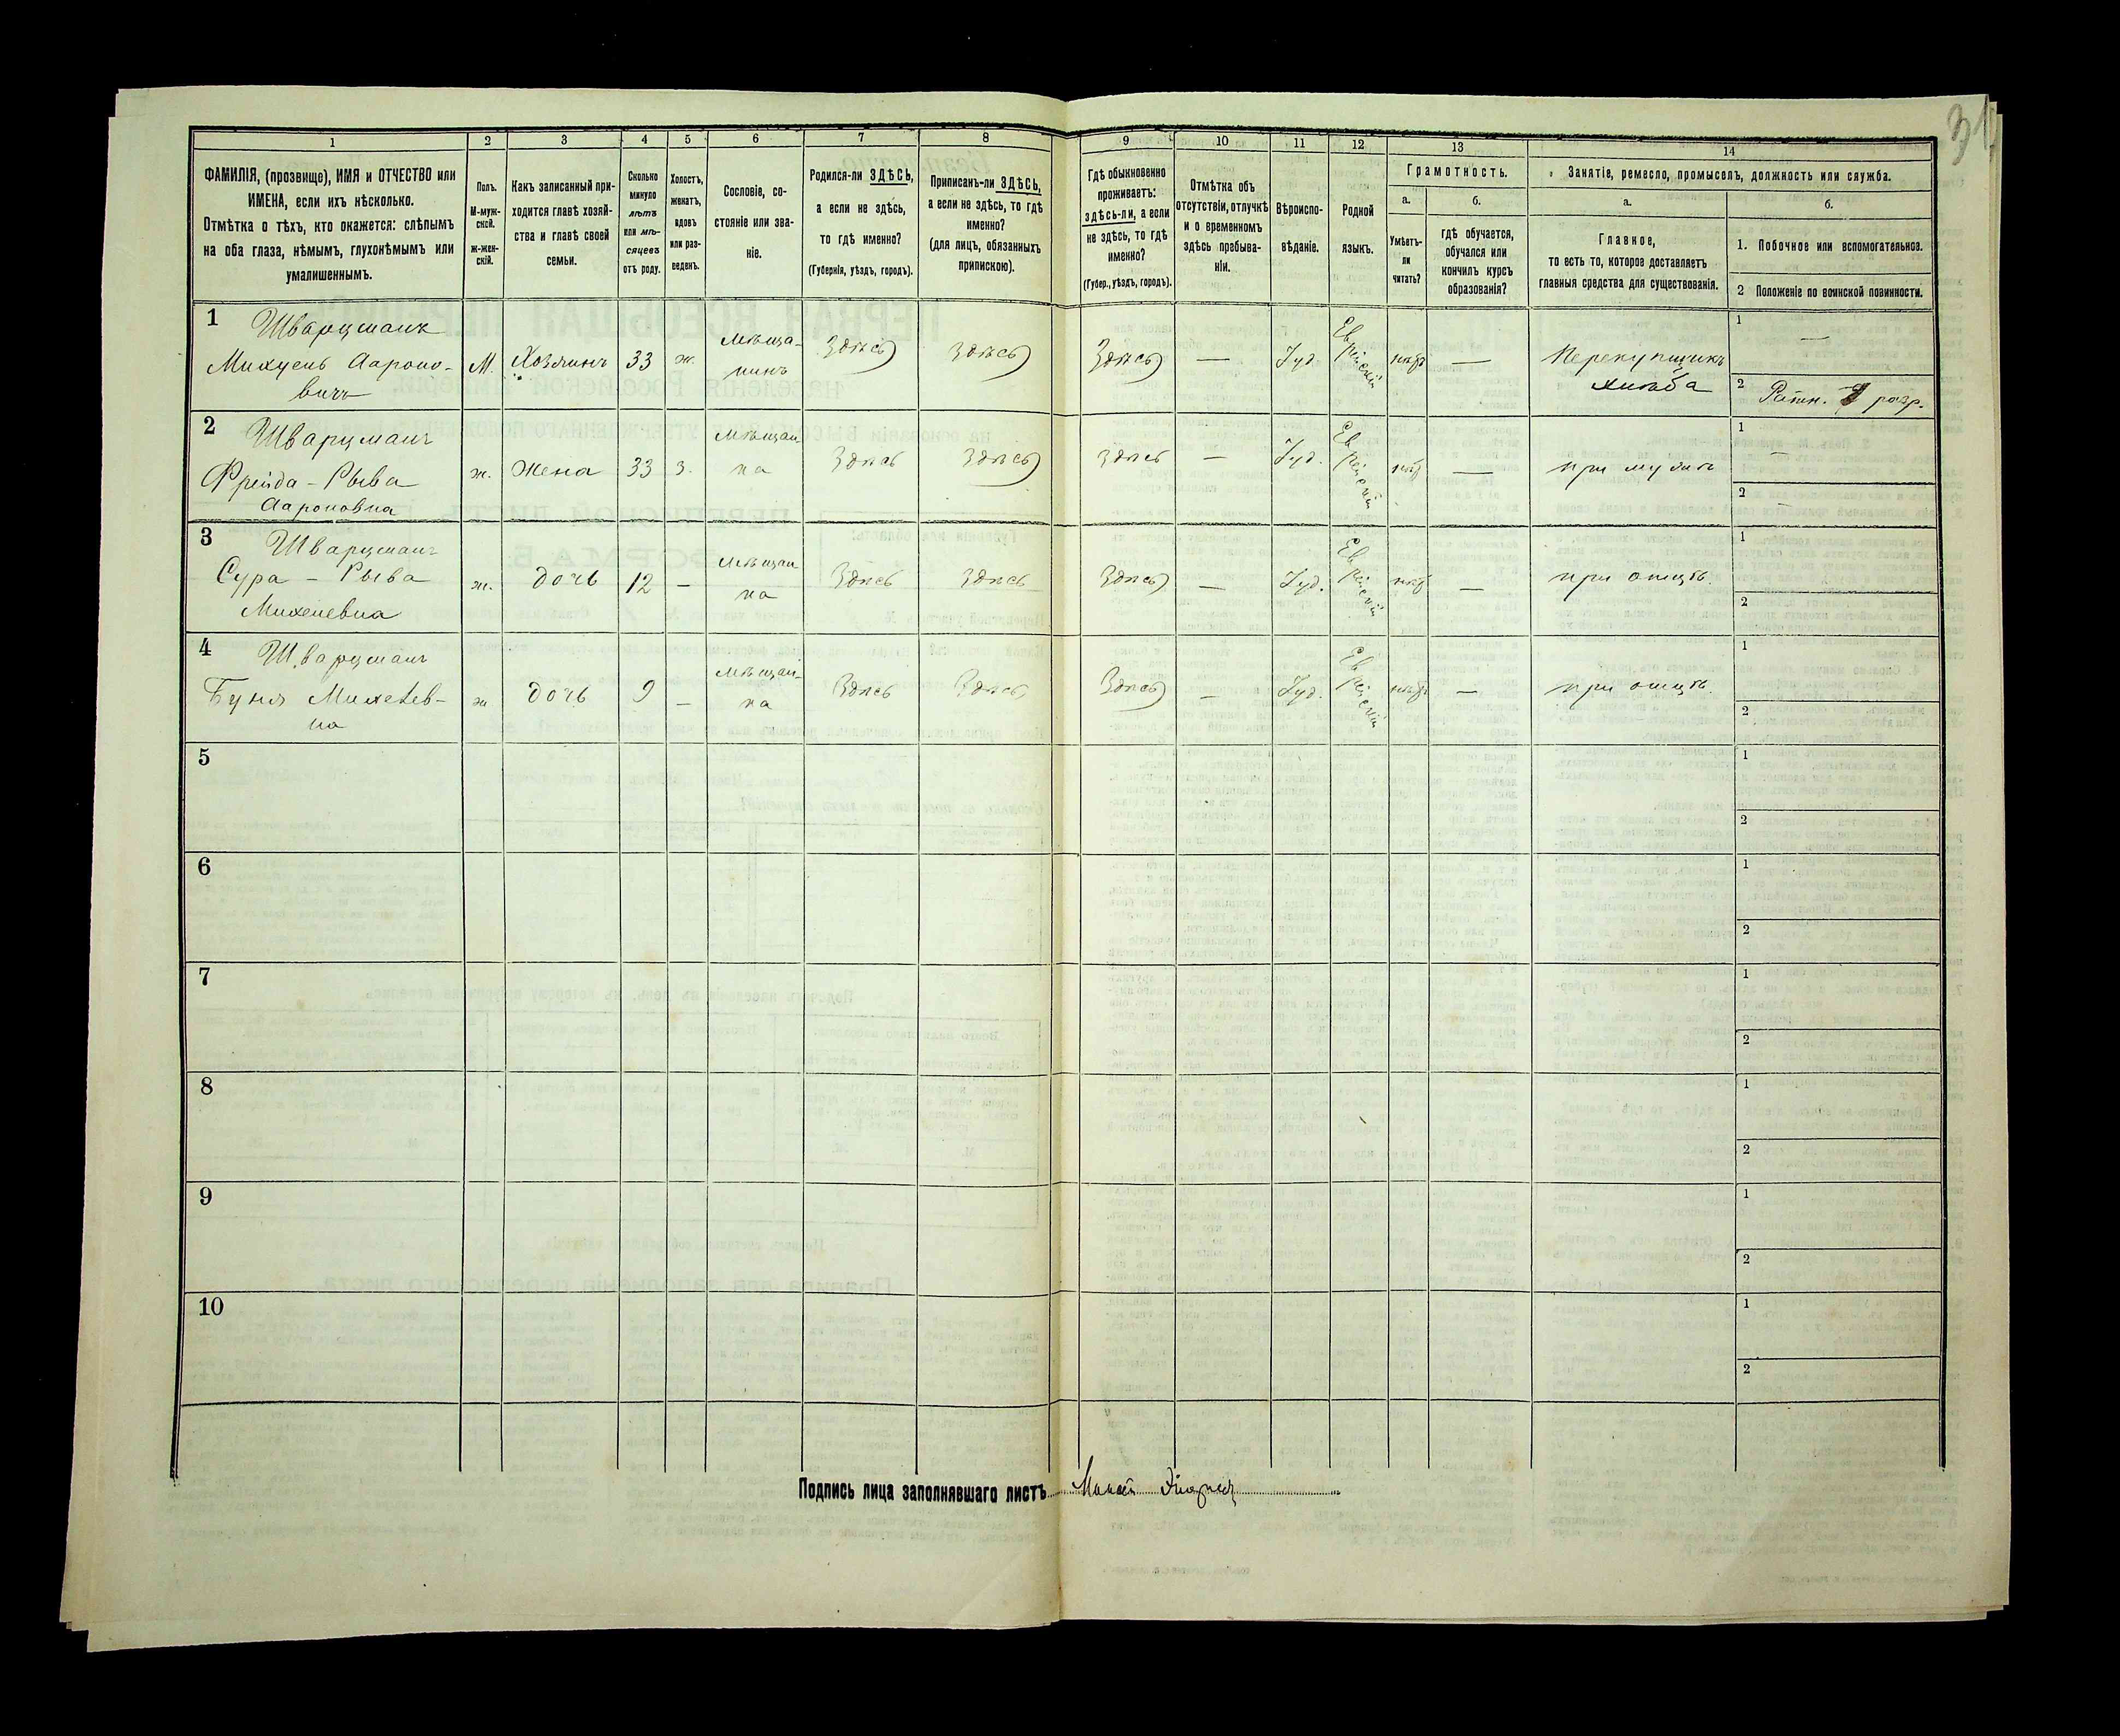 31
1
2
3
4
5
6
7
8
9
10
11
12
13
14
ФАМИЛІЯ, (прозвище), ИМЯ и ОТЧЕСТВО или
ИМЕНА, если ихъ нѣсколько.
Отмѣтка о тѣхъ, кто окажется: слѣпымъ
на оба глаза, нѣмымъ, глухонѣмымъ или
умалишеннымъ.
Полъ.
М-муж-
ской.
ж-жен-
скій.
Какъ записанный при-
ходится главѣ хозяй-
ства и главѣ своей
семьи.
Сколько
минуло
лѣтъ
или мѣ-
сяцевъ
отъ роду.
Холостъ,
женатъ,
вдовъ
или раз-
веденъ.
Сословіе, со-
стояніе или зва-
ніе.
Родился-ли ЗДѢСЬ,
а если не здѣсь,
то гдѣ именно?
(Губернія, уѣздъ, городъ).
Приписанъ-ли ЗДѢСЬ,
а если не здѣсь, то гдѣ
именно?
(для лицъ, обязанныхъ
припискою).
Гдѣ обыкновенно
проживаетъ:
здѣсь-ли, а если
не здѣсь, то гдѣ
именно?
(Губер., уѣздъ, городъ).
Отмѣтка объ
отсутствіи, отлучкѣ
и о временномъ
здѣсь пребыва-
ніи.
Вѣроиспо-
вѣданіе.
Родной
языкъ.
Грамотность.
а.
Умѣетъ-
ли
читать?
б.
гдѣ обучается,
обучался или
кончилъ курсъ
образованія?
Занятіе, ремесло, промыселъ, должность или служба.
а.
Главное,
то есть то, которое доставляетъ
главныя средства для существованія.
б.
1. Побочное или вспомогательное.
2 Положеніе по воинской повинности.
1 Шварцманъ
Аароно-
вичъ
М.
Хозяинъ
33
ж.
мѣща-
нинъ
Здѣсь
Здѣсь
Здѣсь
—
Іуд.
Еврейскій
нѣтъ
—
Перекупщикъ
хлѣба
1 —
2 Ратн. разр.
2 Шварцманъ
Фрейда - Рыва
Аароновна
ж.
Жена
33
з.
мѣщан
ка
Здѣсь
Здѣсь
Здѣсь
—
Іуд.
Еврейскій
нѣтъ
—
при мужѣ
1 —
2 —
3 Шварцманъ
Сура - Рыва
Михелевна
ж.
дочь
12
—
мѣщан
ка
Здѣсь
Здѣсь
Здѣсь
—
Іуд.
Еврейскій
нѣтъ
—
при отцѣ.
1
2
4 Шварцманъ
Буня Михелев-
на
ж
дочь
9
—
мѣщан-
ка
Здѣсь
Здѣсь
Здѣсь
—
Іуд.
Еврейскій
нѣтъ
—
при отцѣ.
1
2
5
1
2
6
1
2
7
1
2
8
1
2
9
1
2
10
1
2
Подпись лица заполнявшаго листъ